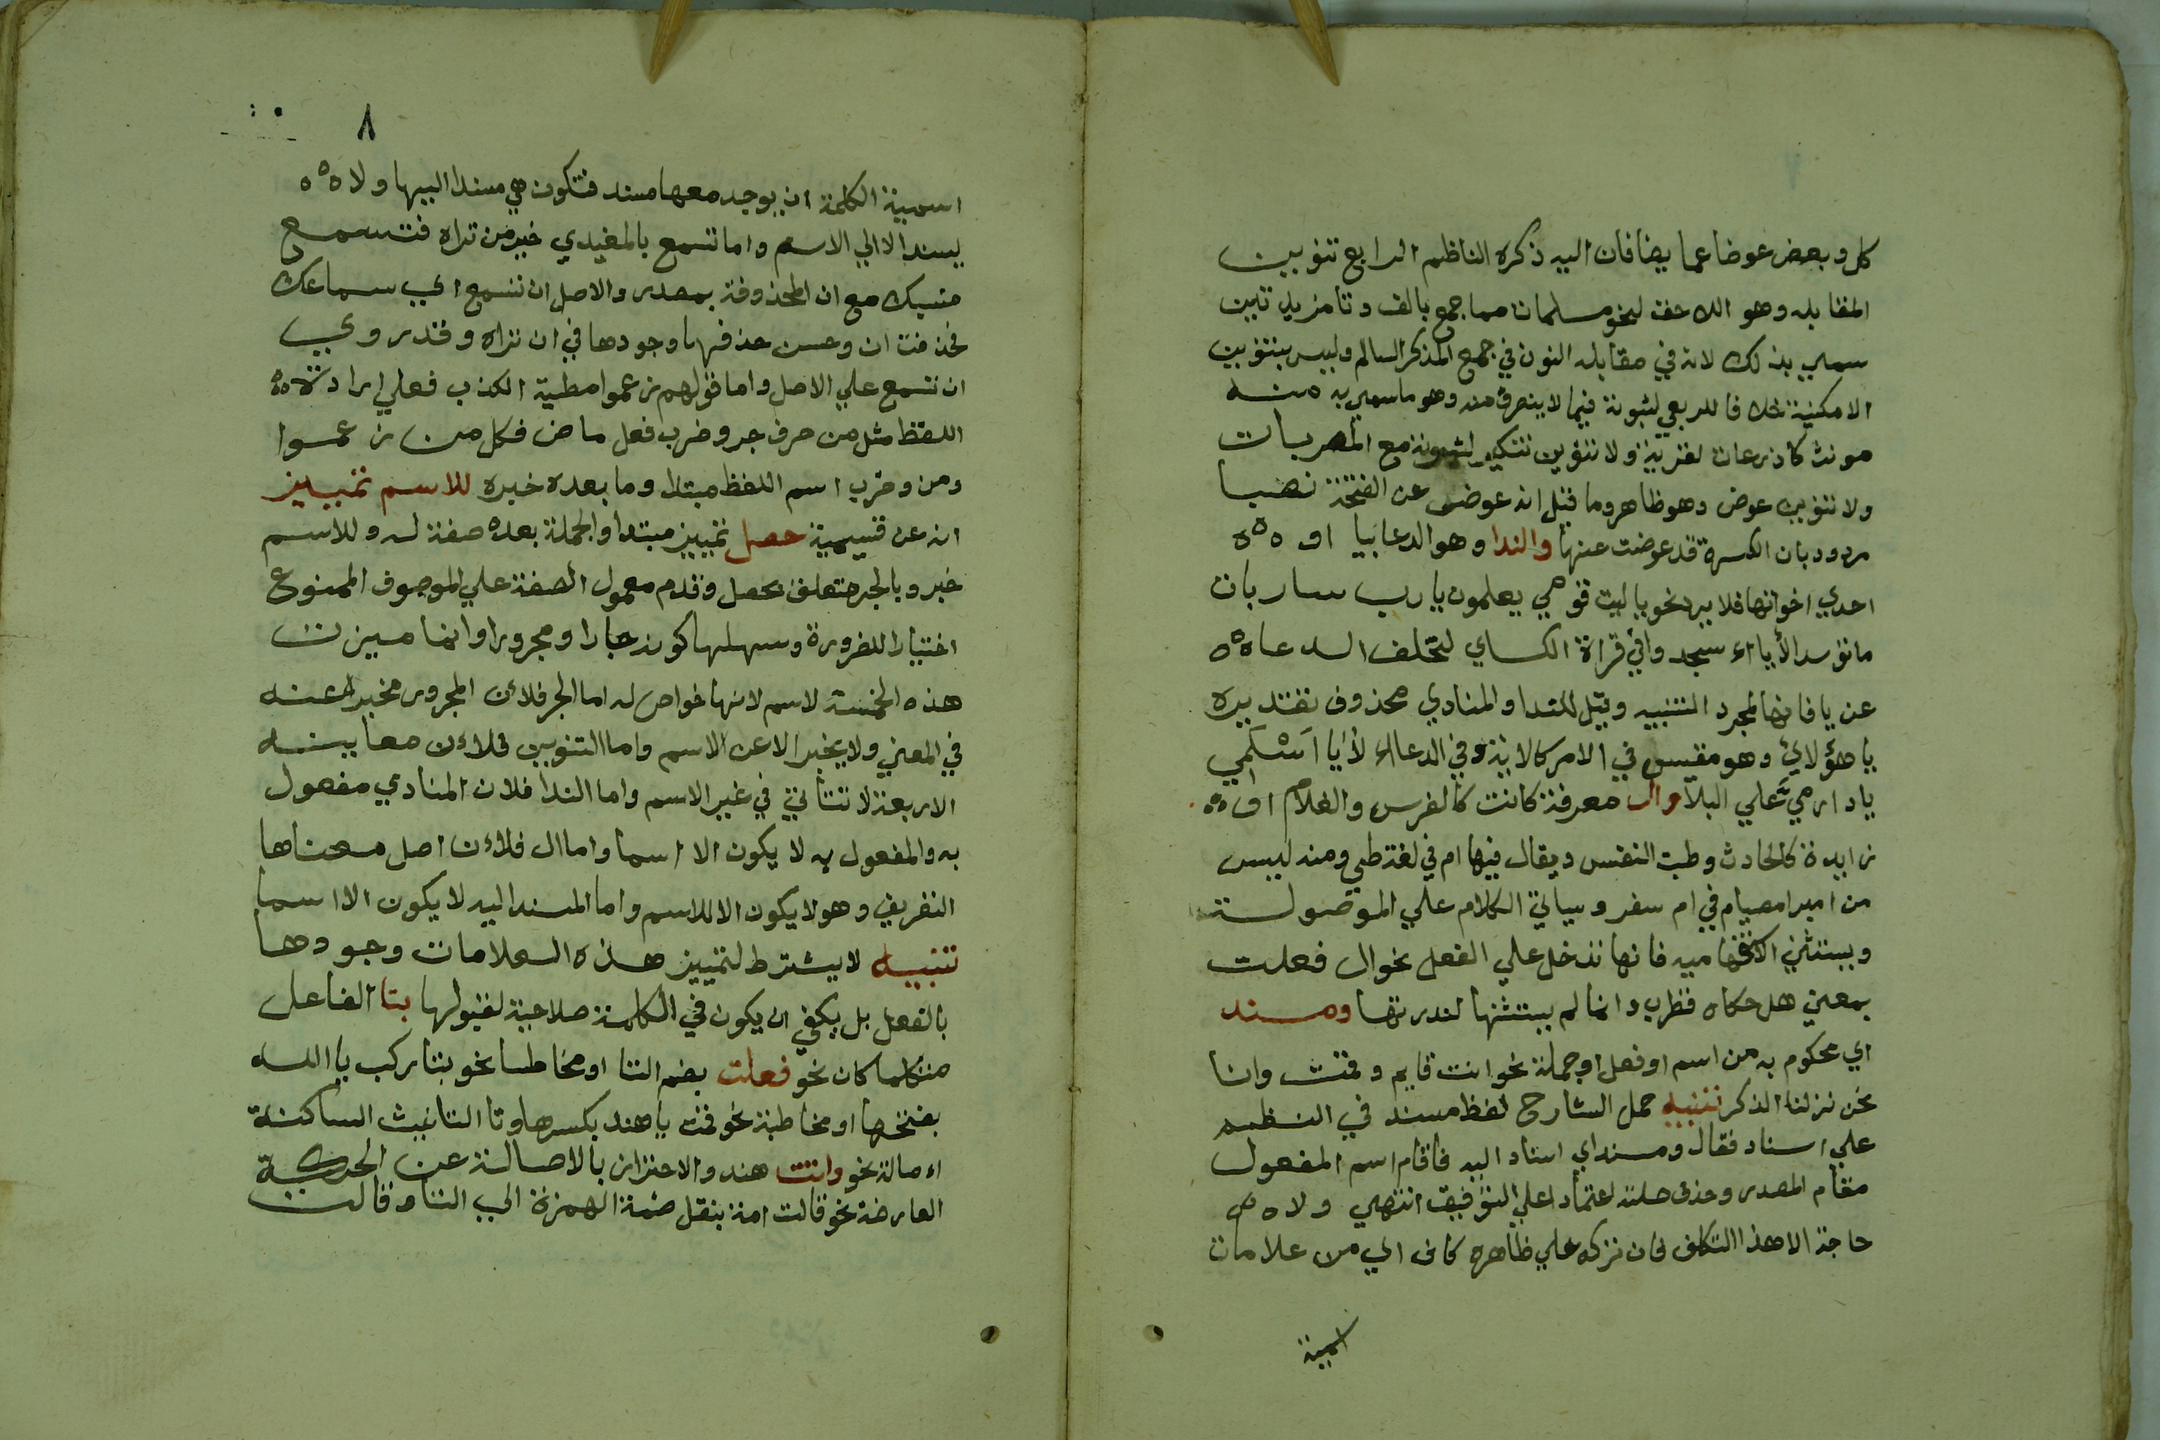 كل وبعض عوضا عما يضافان اليه ذكره الناظم الرابع تنوين
المقابله وهو اللاحق لنحو مسلمات مما جمع بالف وتا مزيدتين
سمي بذلك لانه في مقابله النون في جمع المذكر السالم وليس بتنوين
الامكنية خلافا للربعي لثبوته فيما لا ينصرف منه وهو ما سمي به
مونث كاذرعات لقرية ولا تنوين تنكير لثبوته مع المعربات
ولا تنوين عوض وهو ظاهر وما قيل انه عوض عن الفتحة نصبا
مردود بان الكسرة قد عوضت عنها والندا وهو الدعا بيا او
احدي اخواتها فلا يرد نحو يا ليت قومي يعلمون يا رب سار بات
ما توسد الأيا اسجدوا في قراة الكساي لتخلف الدعا
عن يا فانها لمجرد التنبيه وقيل للندا والمنادي محذوف تقديره
يا هؤلاي وهو مقيس في الامر كالاية وفي الدعا الأيا اسلمي
يا دارمي علي البلا وال معرفة كانت كالفرس والغلام او
زايدة كالحارث وطبت النفس ويقال فيها ام في لغة طي ومنه ليس
من امبر امصيام في ام سفر وسياتي الكلام علي الموصولة
ويستثني الاستفهاميه فانها تدخل علي الفعل نحو ال فعلت
بمعني هل حكاه قطرب وانما لم يستثنها لندرتها ومسند
اي محكوم به من اسم او فعل او جملة نحو انت قايم وقمت وانا
نحن نزلنا الذكر تنبيه حمل الشارح لفظ مسند في النظم
علي اسناد فقال ومسند اي اسناد اليه فاقام اسم المفعول
مقام المصدر وحذف صلته اعتمادا علي التوفيق انتهي ولا
حاجة الا هذا التكلف فان تركه علي ظاهره كاف اي من علامات
اسمية
٨
اسمية الكلمة ان يوجد معها مسند فتكون هي مسندا اليها ولا
يسند الا الي الاسم واما تسمع بالمعيدي خير من تراه فتسمع
منسبك مع ان المحذوفة بمصدر والاصل ان تسمع اي سماعك
فحذفت ان وحسن حذفها وجودها في ان تراه وقد روي
ان تسمع علي الاصل واما قولهم زعموا مطية الكذب فعلي ارادة
اللفظ مثل من حرف جر وضرب فعل ماض فكل من زعموا
ومن وضرب اسم اللفظ مبتدا وما بعده خبره للاسم تمييز
انه عن قسيمية حصل تمييز مبتدا والجملة بعده صفة له وللاسم
خبر وبالجر متعلق بحصل وقدم معمول الصفة علي الموصوف الممنوع
اختيارا للضرورة وسهلها كونه جارا ومجرورا وانما ميزت
هذه الخمسة لاسم لانها خواص له اما الجر فلان المجرور مخبرا عنه
في المعني ولا يخبر الا عن الاسم واما التنوين فلان معانيه
الاربعة لا تتاتي في غير الاسم واما الندا فلان المنادي مفعول
به والمفعول به لا يكون الا اسما واما ال فلان اصل معناها
التعريف وهو لا يكون الا للاسم واما المسند اليه لا يكون الا اسما
تنبيه لا يشترط لتمييز هذه العلامات وجودها
بالفعل بل يكفي ان يكون في الكلمة صلاحية لقبولها بتا الفاعل
متكلما كان نحو فعلت بضم التا او مخاطبا نحو بتا يركب يا الله
بفتحها او مخاطبة نحو قمت يا هند بكسرها وتا التانيث الساكنة
اصالة نحو واتت هند والاحتراز بالاصالة عن الحركة
العارضة نحو قالت امة بنقل ضمة الهمزة الي التا وقالت